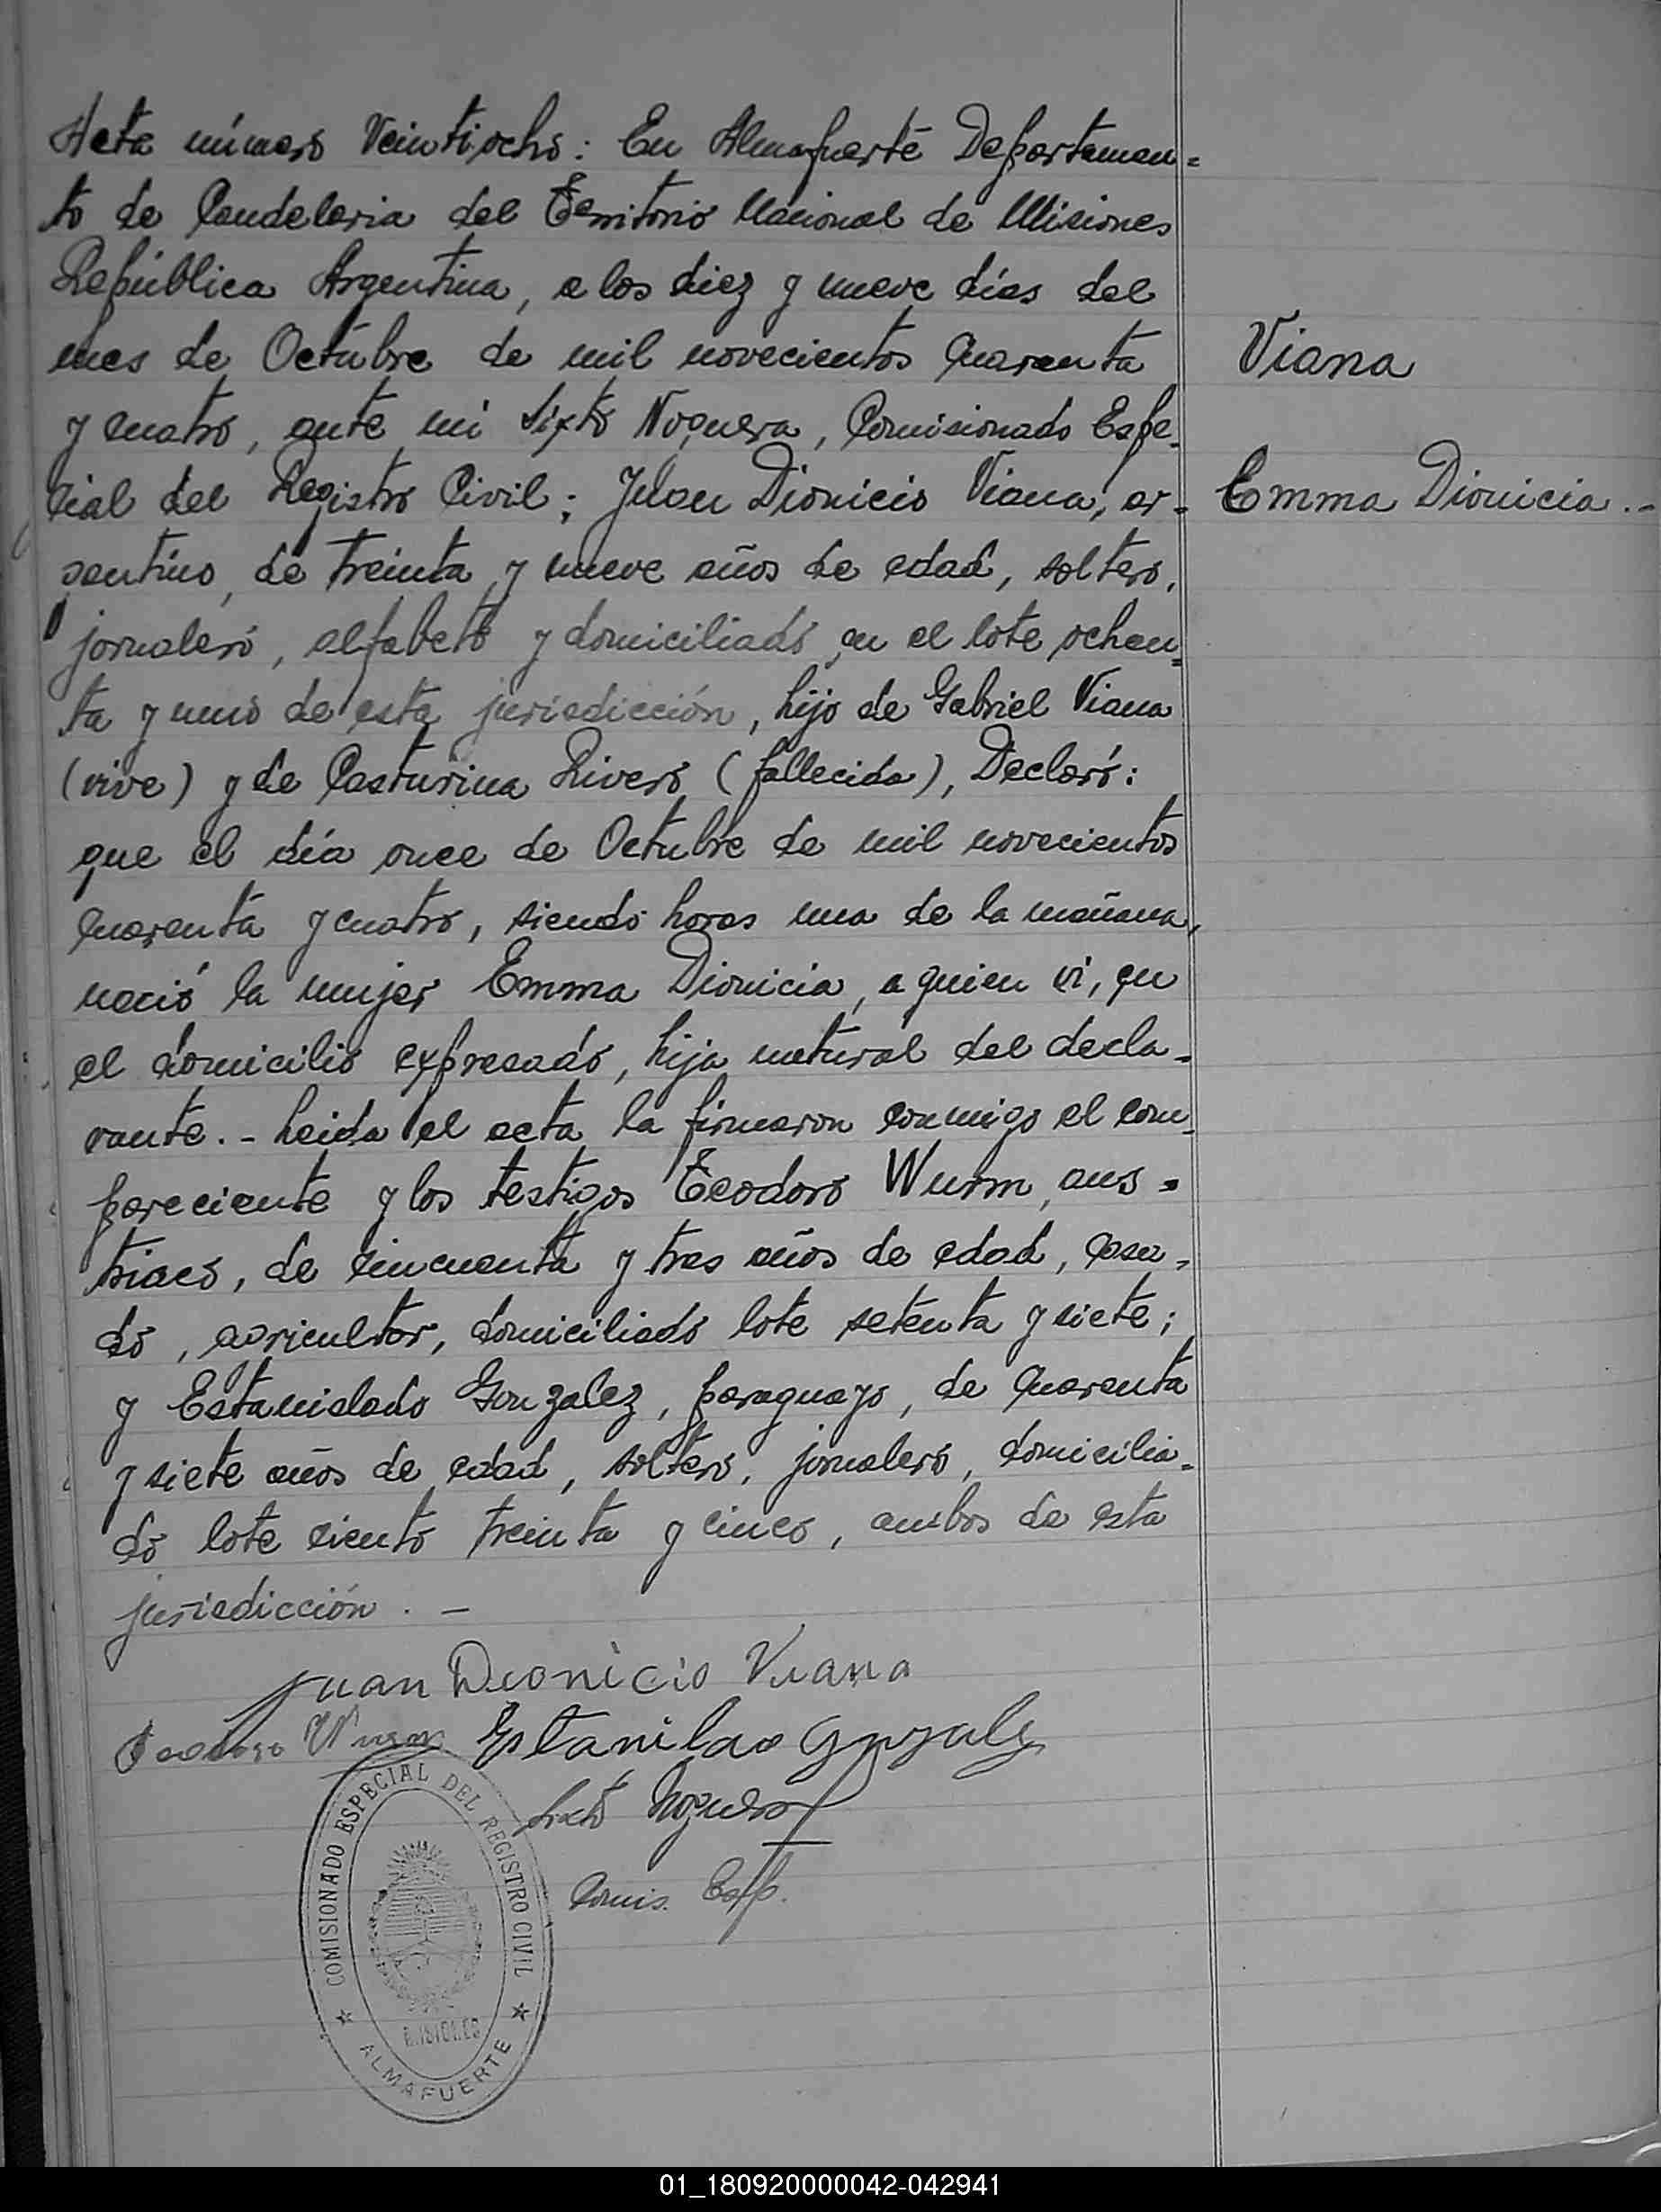 Acta número Veintiocho: En Almafuerte Departamen=
to de Candelaria del Territorio Nacional de Misiones
República Argentina, a los diez y nueve días del
mes de Octubre de mil novecientos cuarenta
y cuatro, ante mi Sixto Noguera, Comisionado Espe-
cial del Registro Civil; Juan Dionicio Viana, ar-
gentino, de treinta y nueve años de edad, soltero,
jornalero, alfabeto y domiciliado en el lote ochen=
ta y uno de esta jurisdicción, hijo de Gabriel Viana
(vive) y de Casturina Rivero (fallecida), Declaró:
que el día once de Octubre de mil novecientos
cuarenta y cuatro, siendo horas una de la mañana,
nació la mujer Emma Dionicia, a quien vi, en
el domicilio expresado, hija natural del decla-
rante.- Leida el acta la firmaron conmigo el com-
pareciente y los testigos Teodoro Wurm, aus=
triaco, de cincuenta y tres años de edad, casa-
do, agricultor, domiciliado lote setenta y siete;
y Estanislado Gonzalez, paraguayo, de cuarenta
y siete años de edad, soltero, jornalero, domicilia-
do lote ciento treinta y cinco, ambos de esta
jurisdicción.-
Viana
Emma Dionicia.-
Juan Dionicio Viana
Teodoro Wurm Estanilao Gonzalez
Sixto Noguera
Comis. Esp.
COMISIONADO ESPECIAL DEL REGISTRO CIVIL
MISIONES
★ ALMAFUERTE ★
01_180920000042-042941